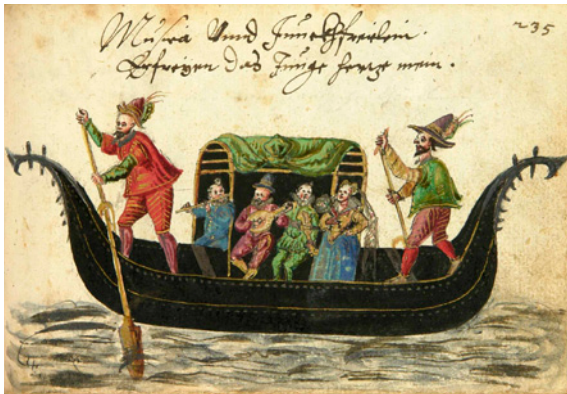 Musica Vnnd Junckfreilein. 235
Erfreyen das Junge hertz mein.